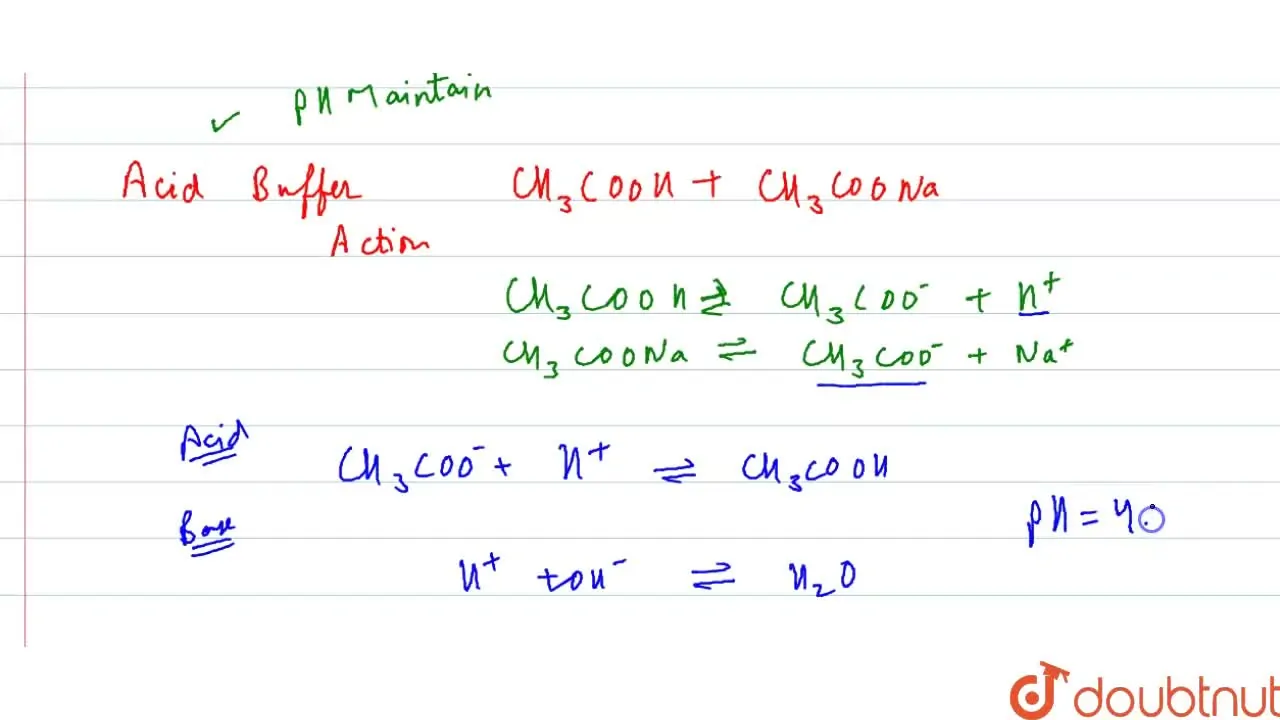 ✓ pH Maintain
Acid Buffer CH₃COOH + CH₃COONa
Action
CH₃COOH ⇌ CH₃COO⁻ + H⁺
CH₃COONa ⇌ CH₃COO⁻ + Na⁺
Acid
CH₃COO⁻ + H⁺ ⇌ CH₃COOH
Base
pH = 4.
H⁺ + OH⁻ ⇌ H₂O
doubtnut